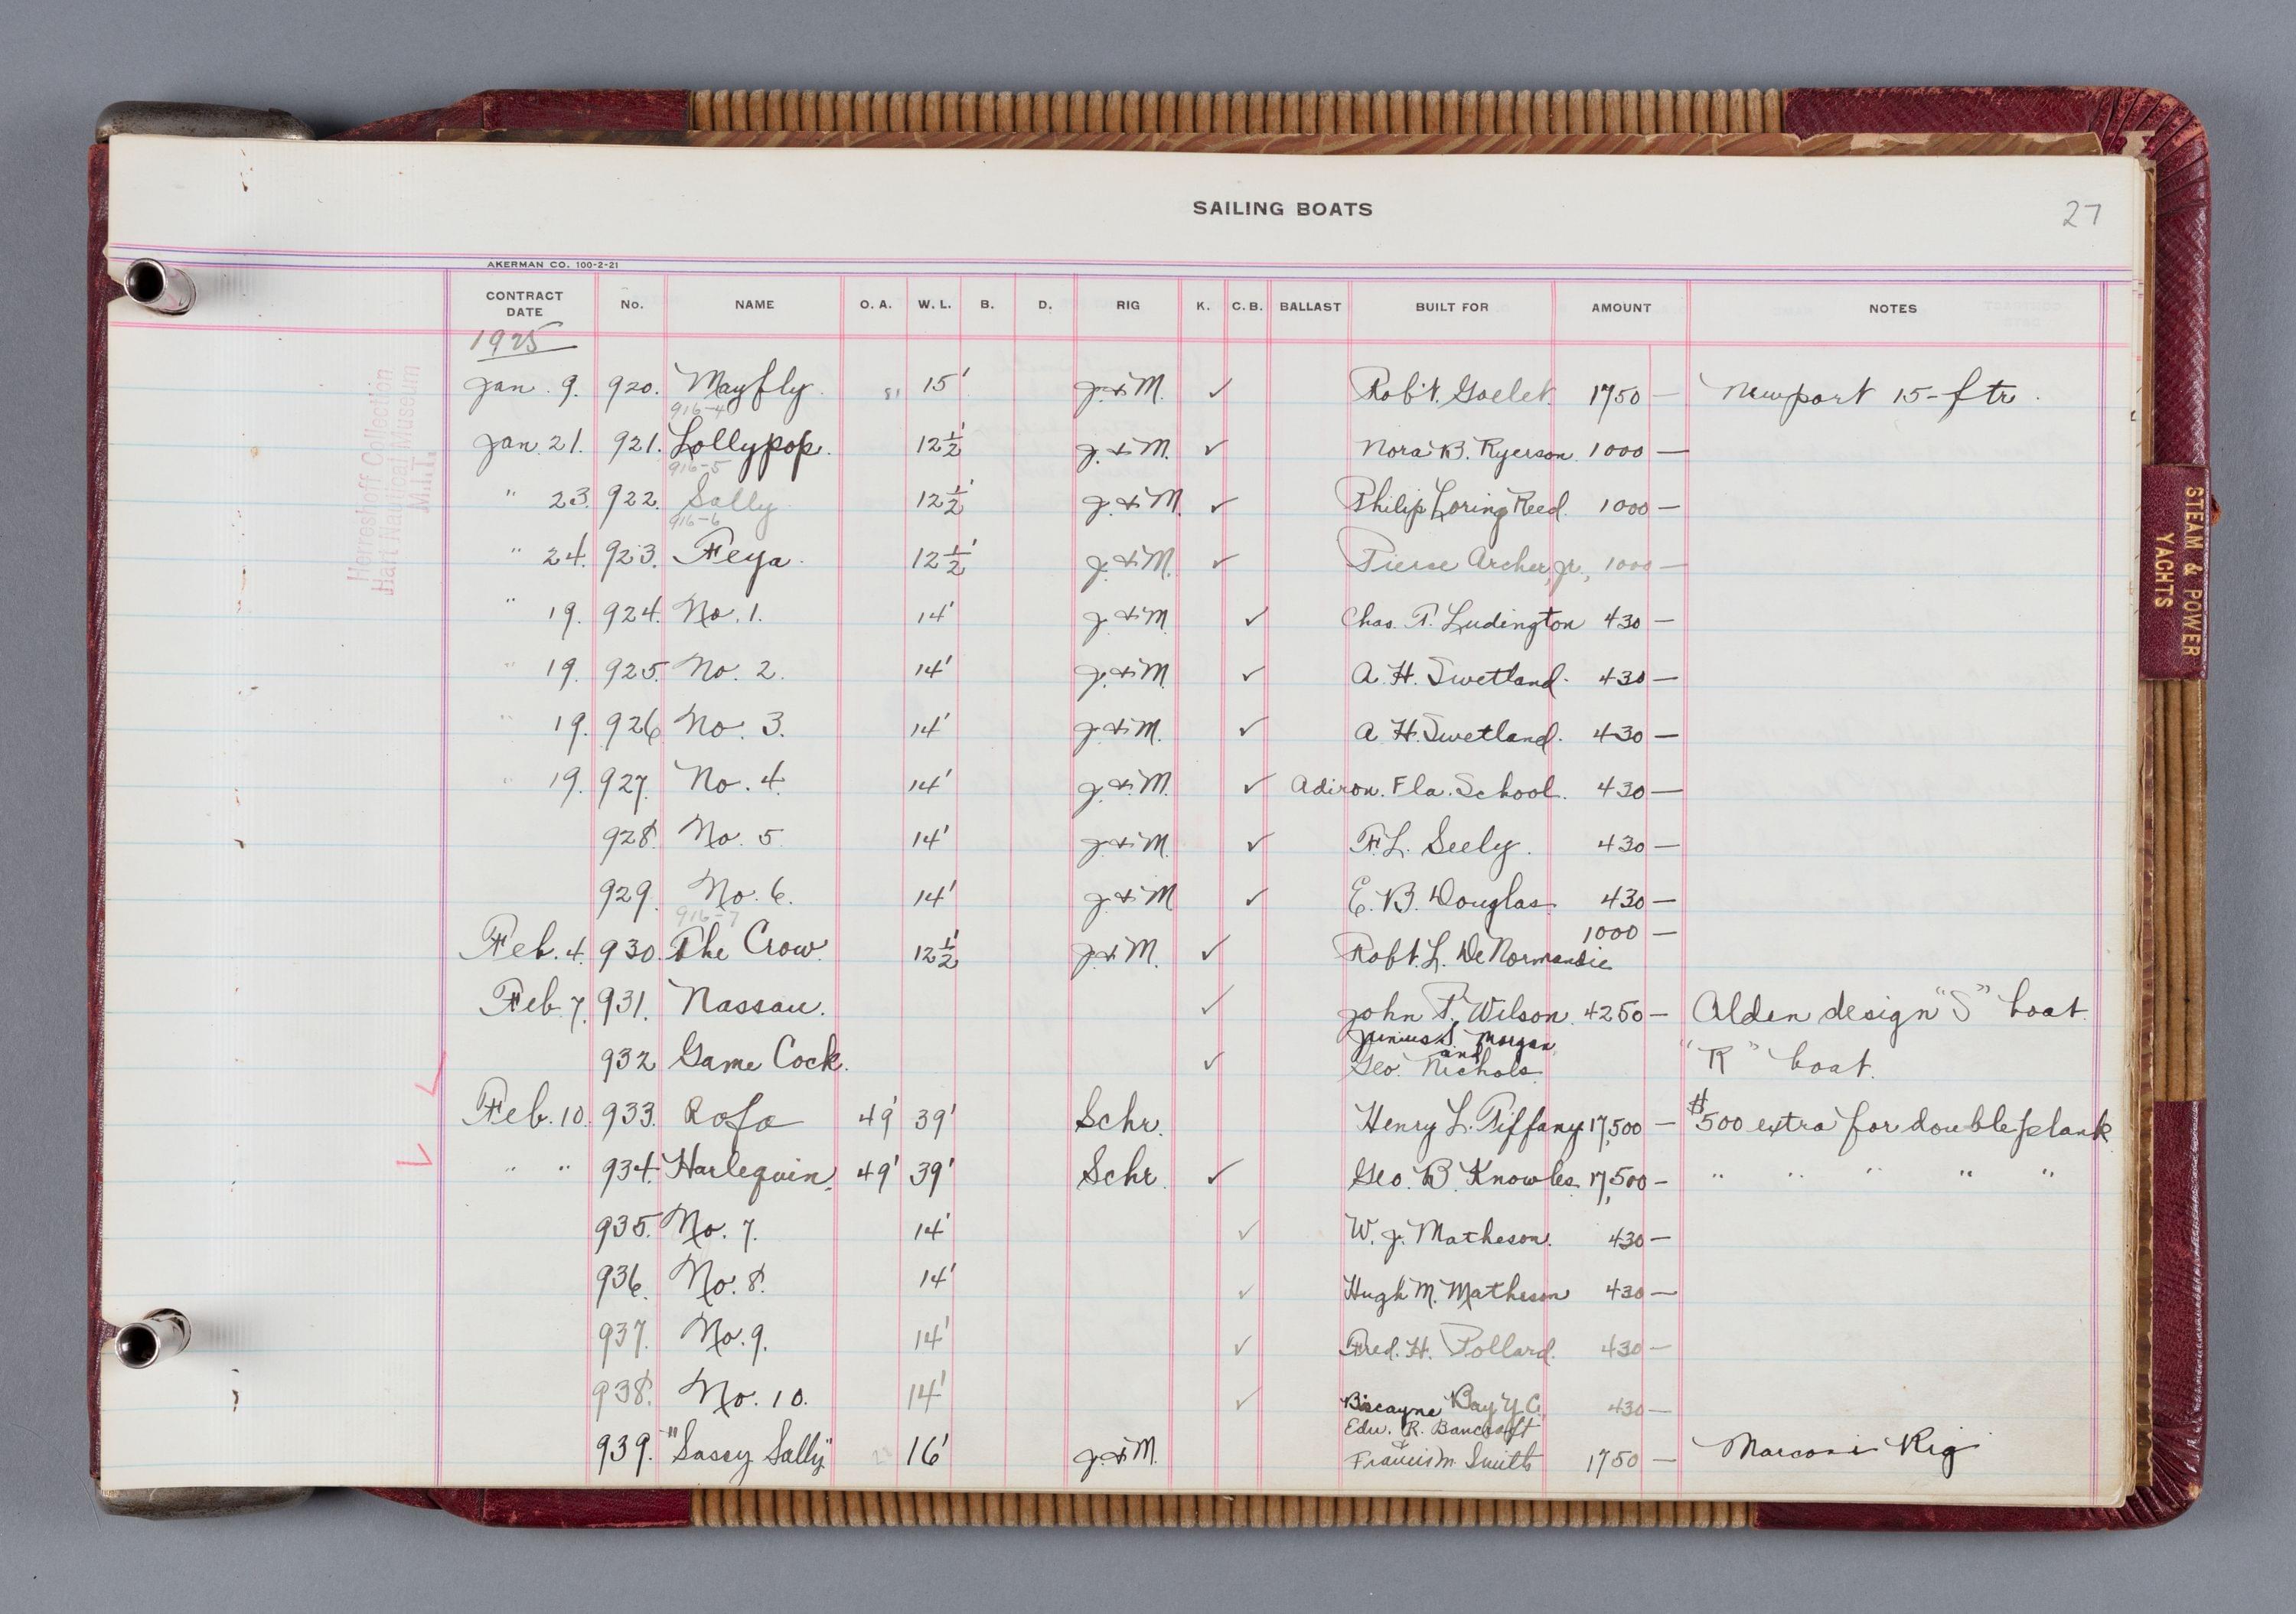 SAILING BOATS
27
AKERMAN CO. 100-2-21
CONTRACT DATE No. NAME O. A. W. L. B. D. RIG K. C. B. BALLAST BUILT FOR AMOUNT NOTES
1925
Jan. 9. 920. Mayfly. 15' J. & M. ✓ Rob't. Goelet. 1750 — Newport 15-ftr.
916-4
Jan. 21. 921. Lollypop. 12 1/2' J. & M. ✓ Nora B. Ryerson. 1000 —
916-5
" 23. 922. Sally 12 1/2' J. & M. ✓ Philip Loring Reed. 1000 —
916-6
" 24. 923. Feya. 12 1/2' J. & M. ✓ Pierse Archer, Jr., 1000 —
" 19. 924. No. 1. 14' J. & M. ✓ Chas. T. Ludington 430 —
" 19. 925. No. 2. 14' J. & M. ✓ A. H. Swetland. 430 —
" 19. 926. No. 3. 14' J. & M. ✓ A. H. Swetland. 430 —
" 19. 927. No. 4. 14' J. & M. ✓ Adiron. Fla. School. 430 —
928. No. 5 14' J. & M. ✓ F. L. Seely. 430 —
929. No. 6. 14' J. & M ✓ E. B. Douglas. 430 —
916-7
Feb. 4. 930. The Crow. 12 1/2' J. & M. ✓ Robt. L. De Normandie 1000 —
Feb. 7. 931. Nassau. ✓ John P. Wilson. 4250 — Alden design "S" boat.
932 Game Cock. ✓ Junius S. Morgan and Geo. Nichols. "R" boat.
Feb. 10. 933. Rofa 49' 39' Schr. Henry L. Tiffany 17,500 — $500 extra for double plank
" " 934. Harlequin. 49' 39' Schr. ✓ Geo. B. Knowles. 17,500 — " " " " "
935. No. 7. 14' ✓ W. J. Matheson. 430 —
936. No. 8. 14' ✓ Hugh M. Matheson 430 —
937. No. 9. 14' ✓ Fred. H. Pollard. 430 —
938. No. 10. 14' ✓ Biscayne Bay Y. C. 430 —
939. "Sassy Sally" 16' J. & M. Edw. R. Bancroft & Francis M. Smith 1750 — Marconi Rig
Herreshoff Collection
Hart Nautical Museum
M.I.T.
STEAM & POWER
YACHTS